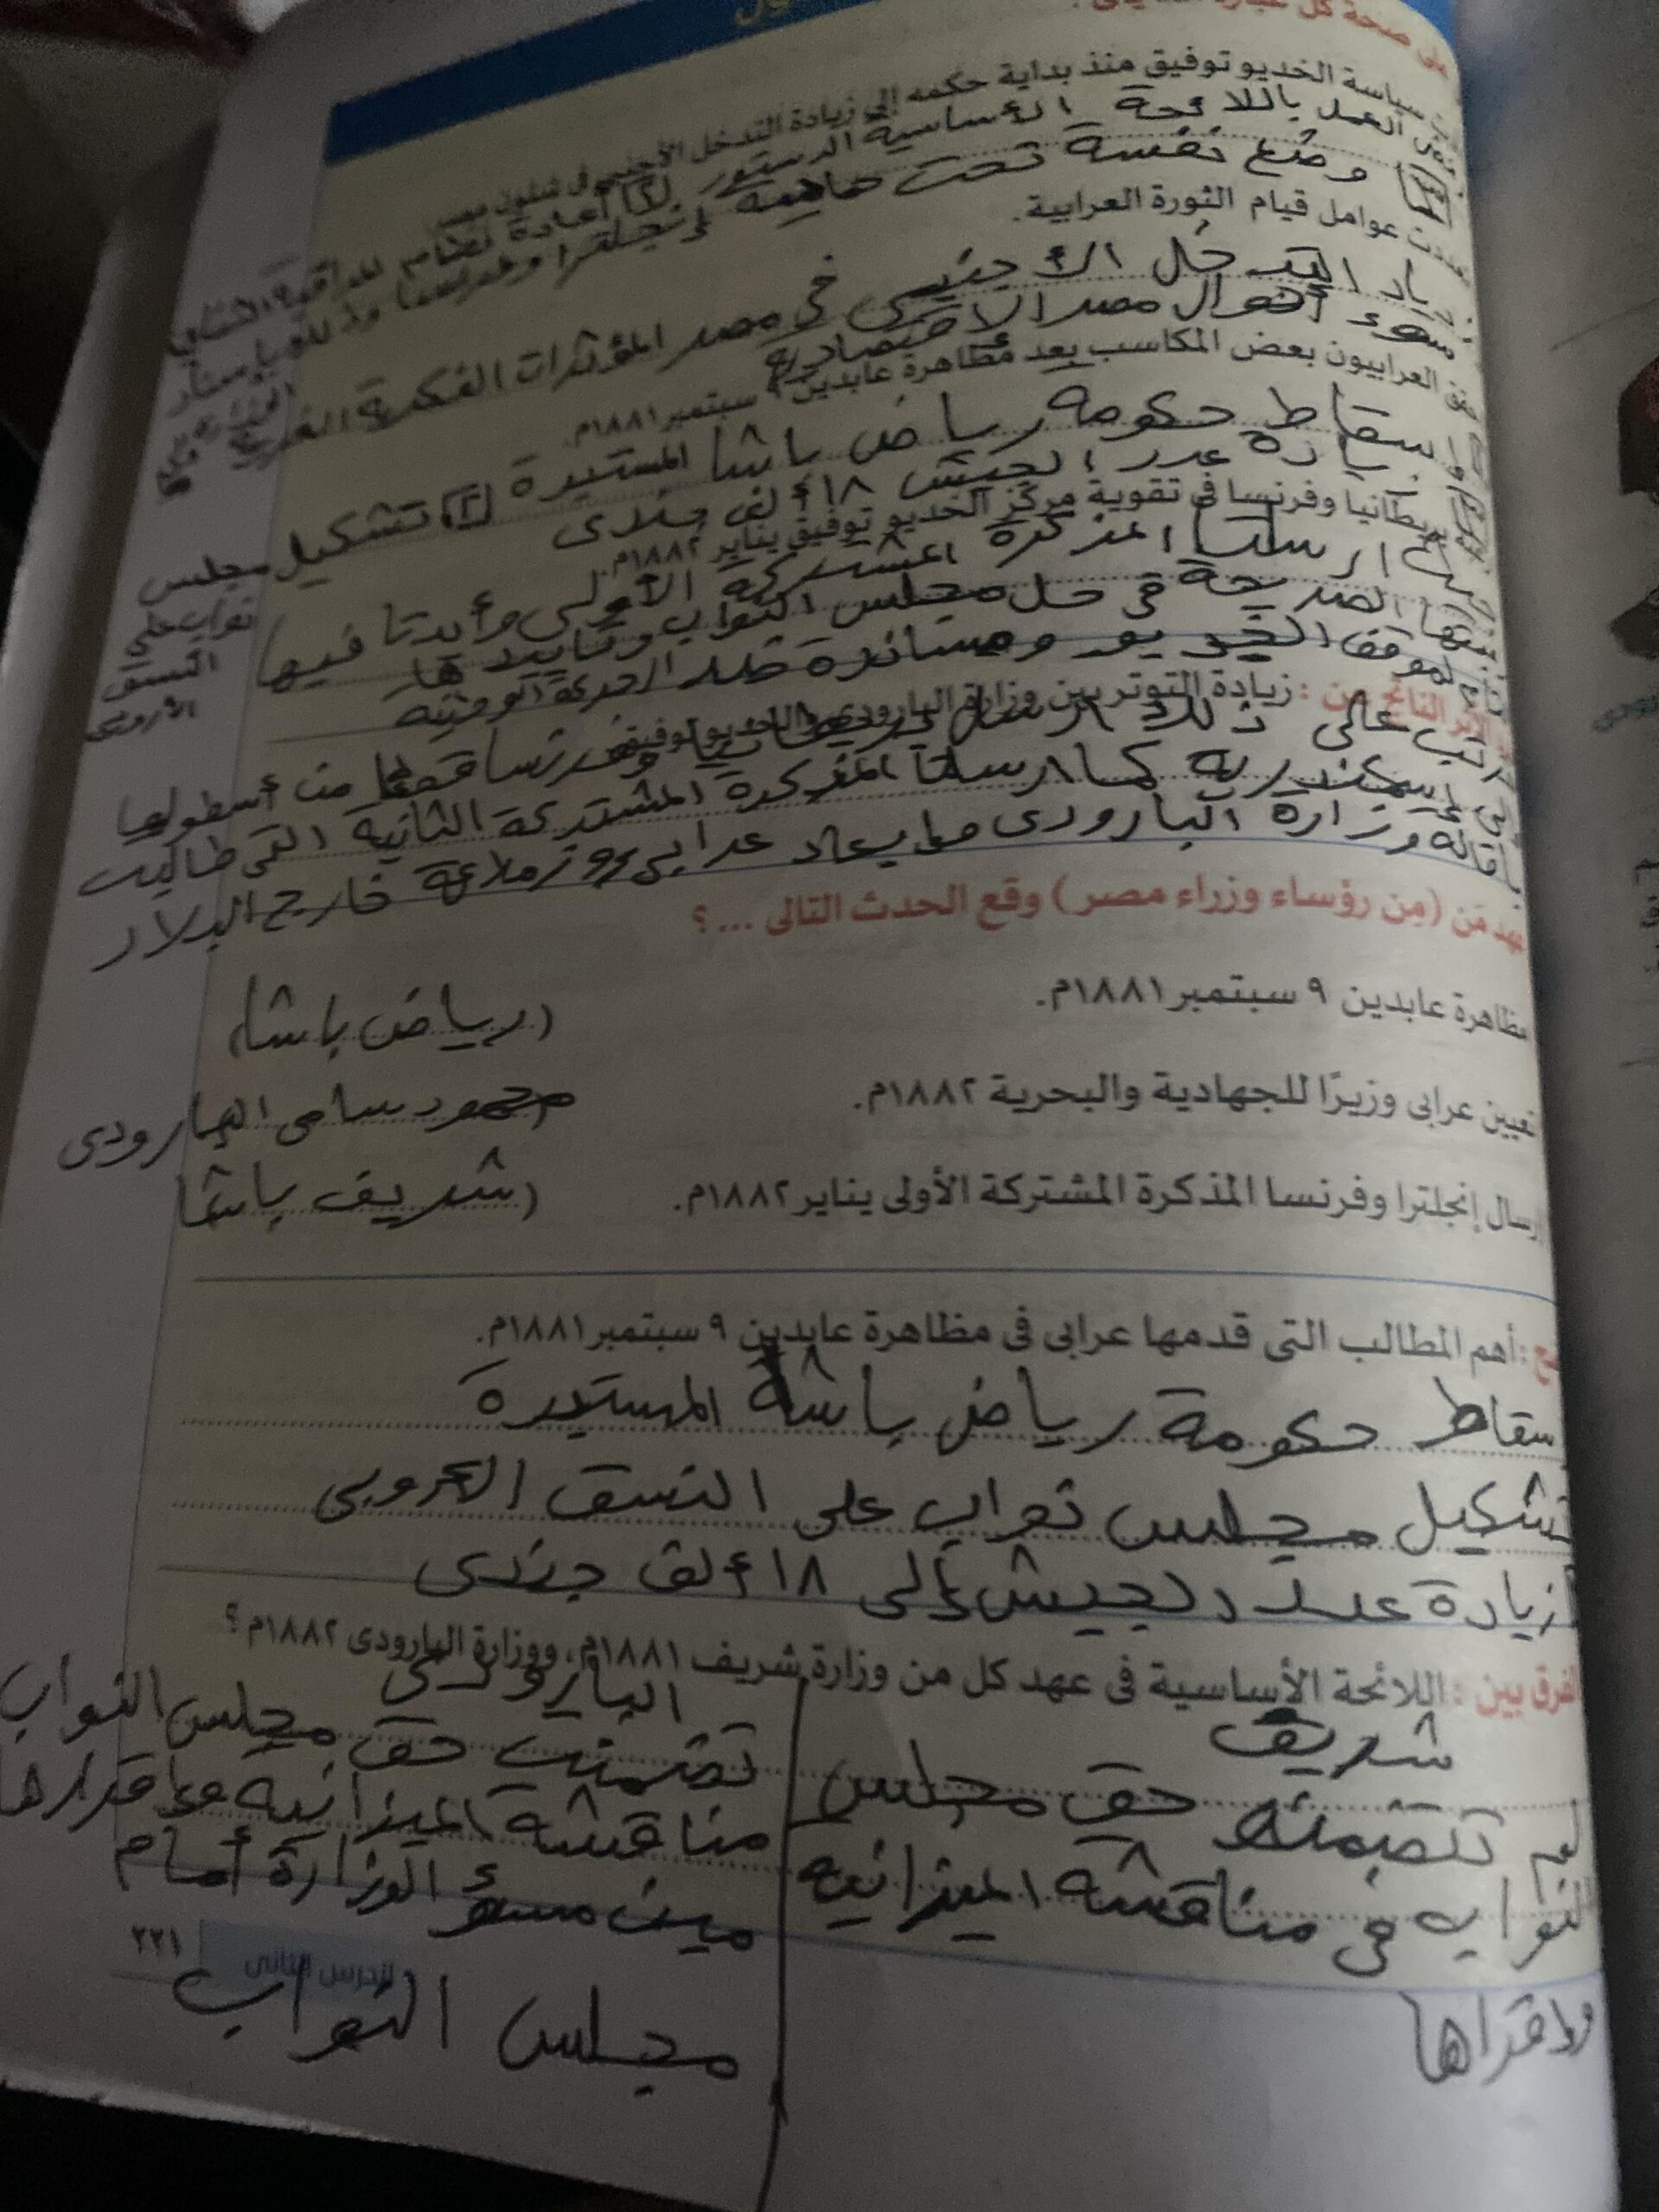 على صحة كل عبارة
سياسة الخديو توفيق منذ بداية حكمه إلى زيادة التدخل الأجنبى فى شئون مصر
العمل باللائحة الأساسية الدستور ٢ إعادة نظام المراقبة
وضع نفسة تحت حماية إنجلترا وفرنسا
عوامل قيام الثورة العرابية.
التدخل الأجنبى فى مصر المؤثرات الفكرية
سوء أحوال مصر الاقتصادية
العرابيون بعض المكاسب بعد مظاهرة عابدين ٩ سبتمبر ١٨٨١م.
اسقاط حكومة رياض باشا المستبدة ٢ تشكيل مجلس
نواب على
النسق
الأوروبى
زيادة عدد الجيش ١٨ ألف جندى
بريطانيا وفرنسا فى تقوية مركز الخديو توفيق يناير ١٨٨٢م.
ارسلتا المذكرة المشتركة الأولى وأيدتا فيها
الصريحة فى حل مجلس النواب وتأييدها
لموقف الخديو ومساندة ضد الحركة الوطنية
الأثر الناتج من : زيادة التوتر بين وزارة البارودى والخديو توفيق
ترتب على ذلك ارسال بريطانيا وفرنسا قطعا من أسطولها
كما ارسلتا المذكرة المشتركة الثانية التى طالبت
بإقالة وزارة البارودى وإبعاد عرابى وزملاءة خارج البلاد
عهد مَن (مِن رؤساء وزراء مصر) وقع الحدث التالى ...؟
مظاهرة عابدين ٩ سبتمبر ١٨٨١م.
(رياض باشا)
تعيين عرابى وزيرًا للجهادية والبحرية ١٨٨٢م.
محمود سامى البارودى
إرسال إنجلترا وفرنسا المذكرة المشتركة الأولى يناير ١٨٨٢م.
(شريف باشا
: أهم المطالب التى قدمها عرابى فى مظاهرة عابدين ٩ سبتمبر ١٨٨١م.
سقاط حكومة رياض باشا المستبدة
تشكيل مجلس نواب على النسق
زيادة عدد الجيش إلى ١٨ ألف جندى
الفرق بين : اللائحة الأساسية فى عهد كل من وزارة شريف ١٨٨١م، ووزارة البارودى ١٨٨٢م؟
شريف
لم تتضمن حق مجلس
النواب فى مناقشة الميزانية
وإقراها
البارودى
تضمنت حق مجلس النواب
مناقشة الميزانية وإقرارها
الوزارة أمام
مجلس النواب
الدرس الثانى
٢٢١